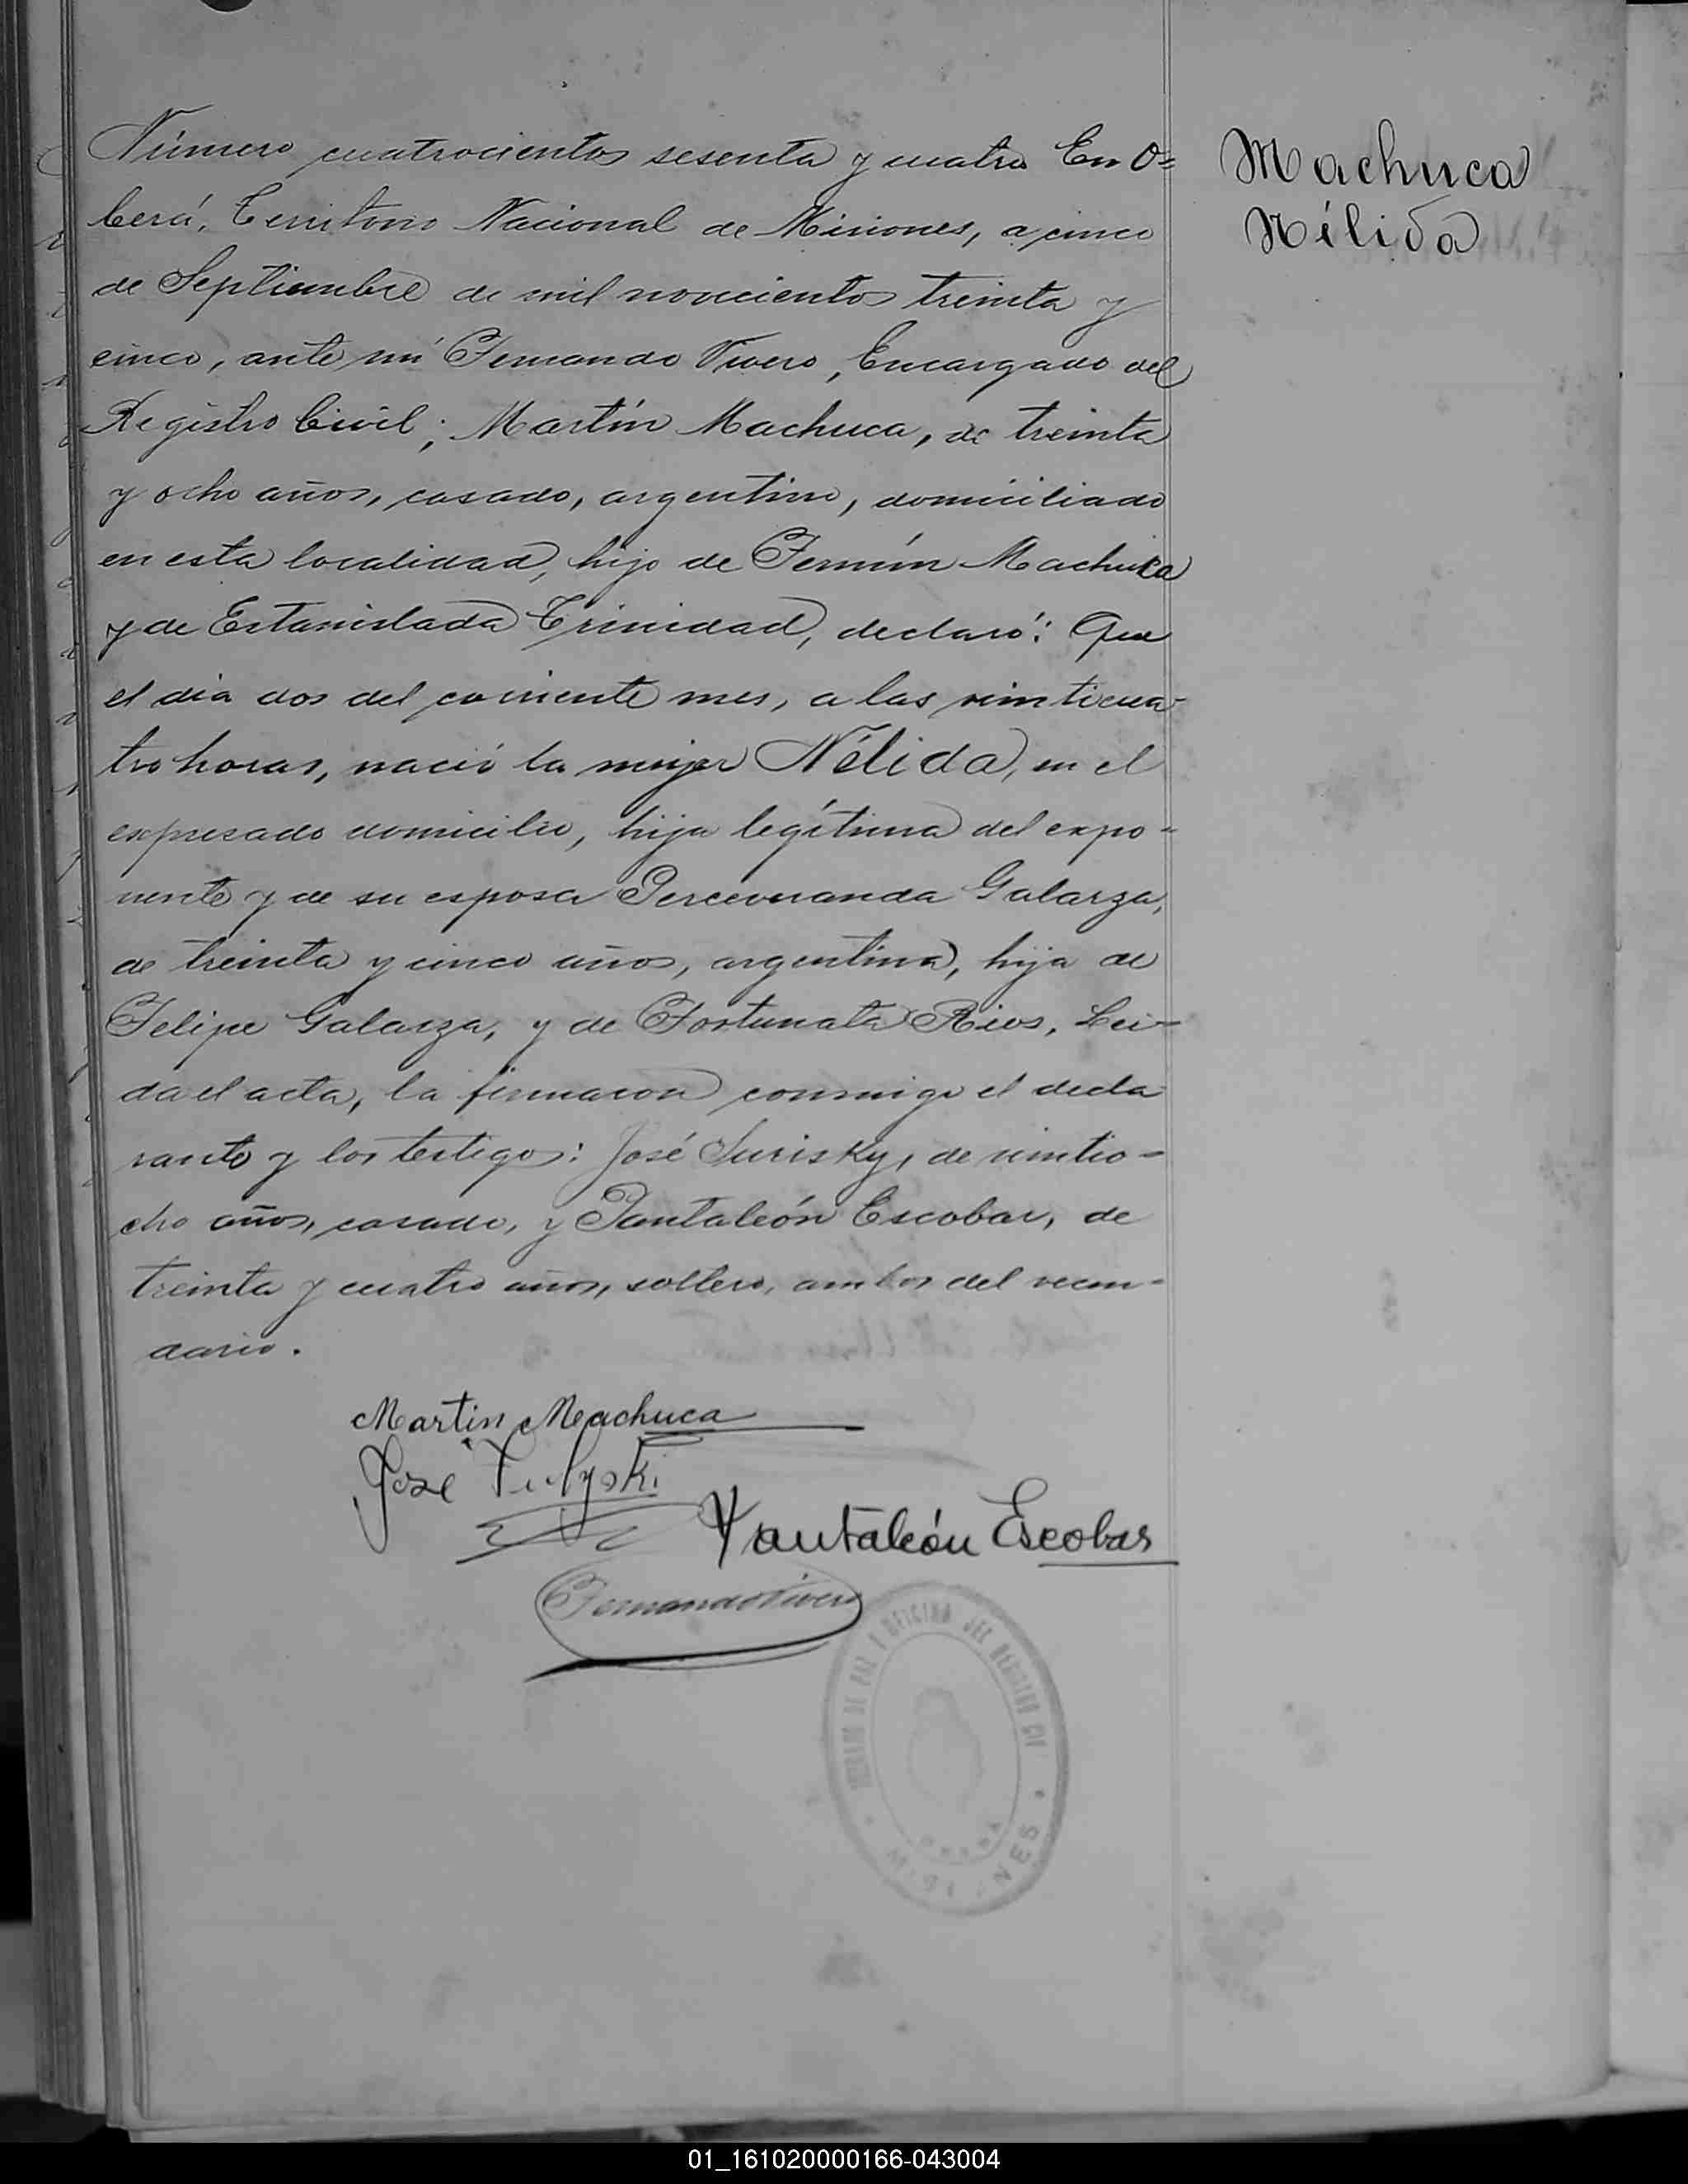 Número cuatrocientos sesenta y cuatro En O=
berá, Territorio Nacional de Misiones, a cinco
de Septiembre de mil novecientos treinta y
cinco, ante mí Fernando Vivero, Encargado del
Registro Civil; Martín Machuca, de treinta
y ocho años, casado, argentino, domiciliado
en esta localidad, hijo de Fermín Machuca
y de Estanislada Trinidad, declaró: Que
el día dos del corriente mes, a las veinticua-
tro horas, nació la mujer Nélida, en el
expresado domicilio, hija legítima del expo-
nente y de su esposa Galarza,
de treinta y cinco años, argentina, hija de
Felipe Galarza, y de Fortunata Rios, Leí-
da el acta, la firmaron conmigo el decla
rante y los testigos: José de veintio-
cho años, casado, y Pantaleón Escobar, de
treinta y cuatro años, soltero, ambos del vecin-
dario.
Machuca
Nélida
Martin Machuca
Jose
Pantaleón Escobar
Fernando Vivero
JUZGADO DE PAZ Y OFICINA DEL REGISTRO CIV
MISIONES
01_161020000166-043004